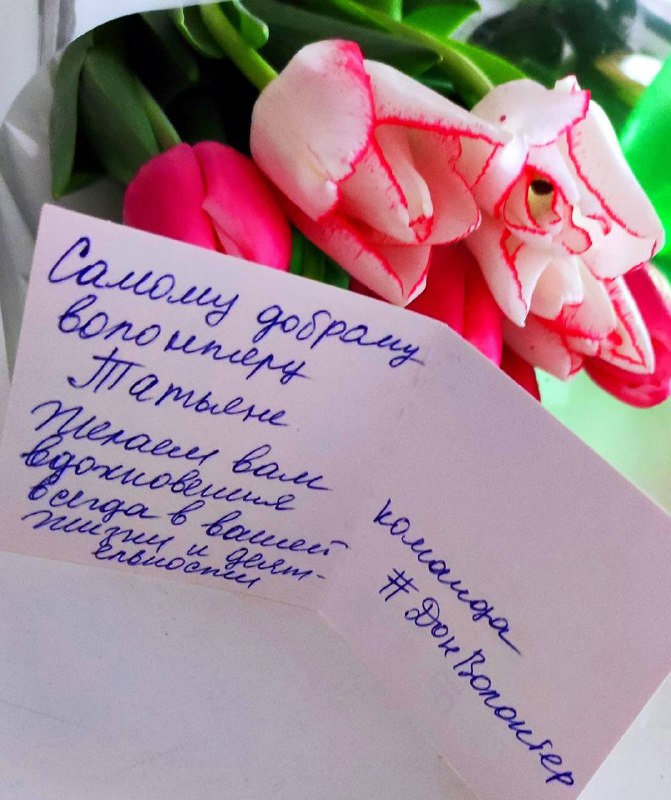 Самому доброму
волонтёру
Татьяне
Желаем вам
вдохновения
всегда в вашей
жизни и деят-
ельности
команда
#ДонВолонтер